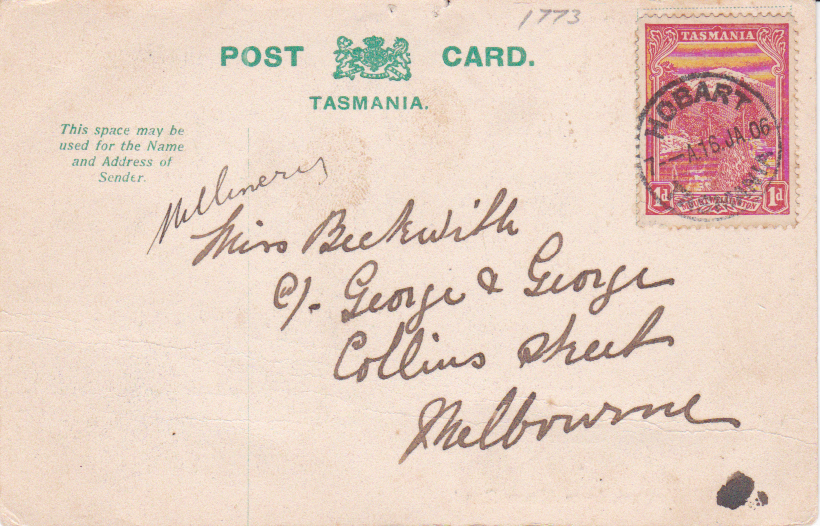 1773
POST CARD.
TASMANIA.
TASMANIA
HOBART
7—A 15.JA.06
TASMANIA
1d MOUNT WELLINGTON 1d
This space may be
used for the Name
and Address of
Sender.
Millinery
Miss Beckwith
C/- George & George
Collins Street
Melbourne